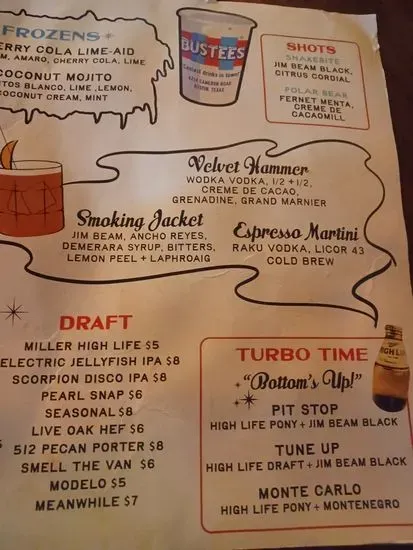 FROZENS
ERRY COLA LIME-AID
M, AMARO, CHERRY COLA, LIME
OCONUT MOJITO
ITOS BLANCO, LIME, LEMON,
COCONUT CREAM, MINT
BUSTEES
Coolest drinks in town!
CAMERON ROAD
AUSTIN, TEXAS
SHOTS
SNAKEBITE
JIM BEAM BLACK,
CITRUS CORDIAL
POLAR BEAR
FERNET MENTA,
CREME DE
CACAOMILL
Velvet Hammer
WODKA VODKA, 1/2 + 1/2,
CREME DE CACAO,
GRENADINE, GRAND MARNIER
Smoking Jacket
JIM BEAM, ANCHO REYES,
DEMERARA SYRUP, BITTERS,
LEMON PEEL + LAPHROAIG
Espresso Martini
RAKU VODKA, LICOR 43
COLD BREW
DRAFT
MILLER HIGH LIFE $5
ELECTRIC JELLYFISH IPA $8
SCORPION DISCO IPA $8
PEARL SNAP $6
SEASONAL $8
LIVE OAK HEF $6
512 PECAN PORTER $8
SMELL THE VAN $6
MODELO $5
MEANWHILE $7
TURBO TIME
"Bottom's Up!"
PIT STOP
HIGH LIFE PONY + JIM BEAM BLACK
TUNE UP
HIGH LIFE DRAFT + JIM BEAM BLACK
MONTE CARLO
HIGH LIFE PONY + MONTENEGRO